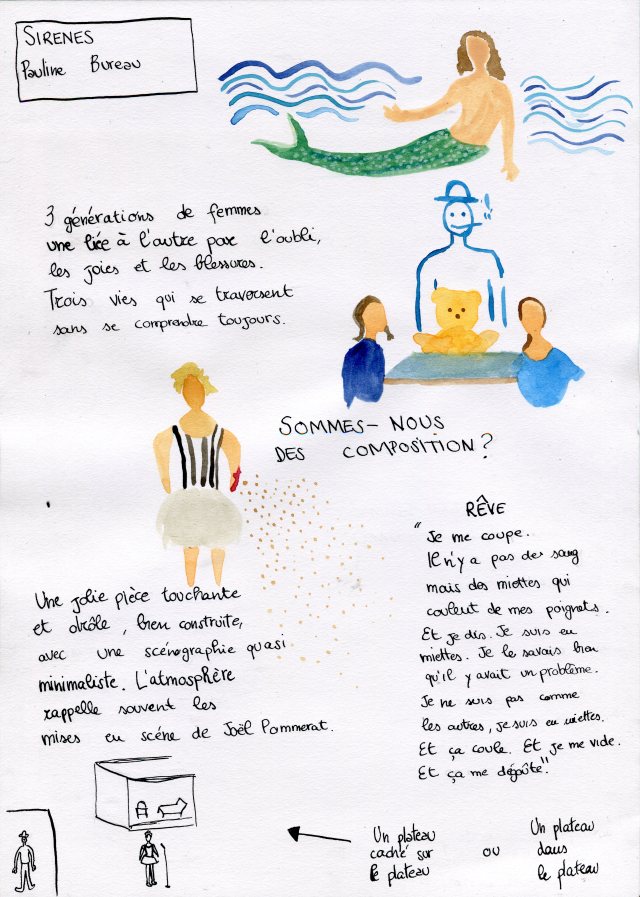 SIRENES
Pauline Bureau
3 générations de femmes
une liée à l'autre par l'oubli,
les joies et les blessures.
Trois vies qui se traversent
sans se comprendre toujours.
SOMMES-NOUS
DES COMPOSITION?
Une jolie pièce touchante
et drôle, bien construite,
avec une scénographie quasi
minimaliste. L'atmosphère
rappelle souvent les
mises en scéne de Joël Pommerat.
RÊVE
"Je me coupe.
Il n'y a pas de sang
mais des miettes qui
coulent de mes poignets.
Et je dis. Je suis en
miettes. Je le savais bien
qu'il y avait un problème.
Je ne suis pas comme
les autres, je suis en miettes.
Et ça coule. Et je me vide.
Et ça me dégoûte"
Un plateau
caché sur
le plateau
ou
Un plateau
dans
le plateau